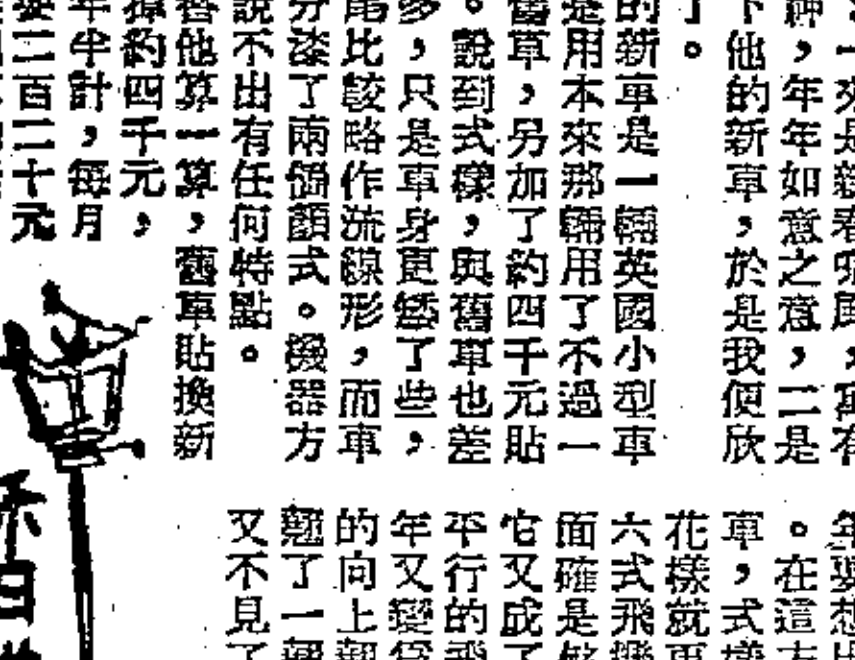 一來是新春，寓有
神，年年如意之意，二是
下他的新車，於是我便欣
了。
的新車是一輛英國小型車
是用本來那輛用了不過一
舊車，另加了約四千元貼
。說到式樣，與舊車也差
多，只是車身更矮了些，
尾比較略作流線形，而車
分漆了兩個顏式。機器方
說不出有任何特點。
替他算一算，舊車貼換新
掉約四千元，
年半計，每月
要二百二十元
年要想出
。在這方
車，式樣
花樣就更
六式飛機
面確是
它又成了
平行的飛
年又變
的向上翹
翹了一翹
又不見了